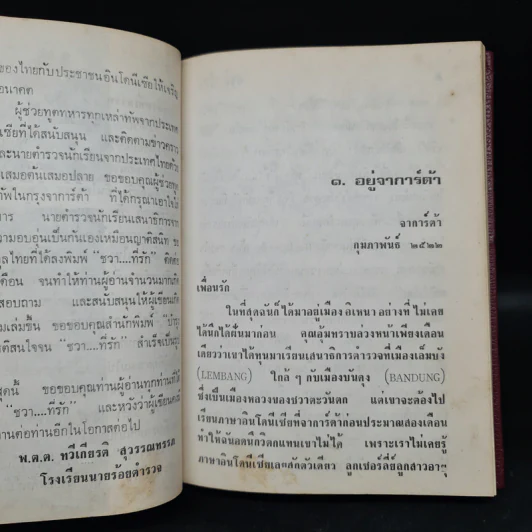 ของไทยกับประชาชนอินโดนีเซียให้เจริญ
อนาคต
ผู้ช่วยทูตทหารทุกเหล่าทัพจากประเทศ
เซียที่ได้สนับสนุน และติดตามข่าวคราว
และนายตำรวจนักเรียนจากประเทศไทยด้วย
เสมอต้นเสมอปลาย ขอขอบคุณผู้ช่วยทูต
ทัพในกรุงจาการ์ต้า ที่ได้กรุณาเอาใจใส่
การ นายตำรวจนักเรียนเสนาธิการจาก
ความอบอุ่นเป็นกันเองเหมือนญาติสนิท
ไทยที่ได้ลงพิมพ์ “ชวา....ที่รัก”
เดือน จนทำให้ท่านผู้อ่านจำนวนมาก
สอบถาม และสนับสนุนให้ผู้เขียน
เล่มขึ้น ขอขอบคุณสำนักพิมพ์
ตัดสินใจจน “ชวา....ที่รัก” สำเร็จเป็น
สุดนี้ ขอขอบคุณท่านผู้อ่านทุกท่านที่ได้
“ชวา....ที่รัก” และหวังว่าผู้เขียนคง
งานต่อท่านอีกในโอกาสต่อไป
พ.ต.ต. ทวีเกียรติ สุวรรณทรรภ
โรงเรียนนายร้อยตำรวจ
๑. อยู่จาการ์ต้า
จาการ์ต้า
กุมภาพันธ์ ๒๕๒๒
เพื่อนรัก
ในที่สุดฉันก็ได้มาอยู่เมืองอิเหนา อย่างที่ไม่เคย
ได้นึกได้ฝันมาก่อน คุณอุ้มทราบล่วงหน้าเพียงเดือน
เดียวว่าเขาได้ทุนมาเรียนเสนาธิการตำรวจที่เมืองเล็มบัง
(LEMBANG) ใกล้ ๆ กับเมืองบันดุง (BANDUNG)
ซึ่งเป็นเมืองหลวงของชวาตะวันตก แต่เขาจะต้องไป
เรียนภาษาอินโดนีเซียที่จาการ์ต้าก่อนประมาณสองเดือน
ทำให้ฉันอดนึกวิตกแทนเขาไม่ได้ เพราะเราไม่เคยรู้
ภาษาอินโดนีเซียเลยสักตัวเดียว ลูกเชอร์ลี่ลูกสาวอายุ